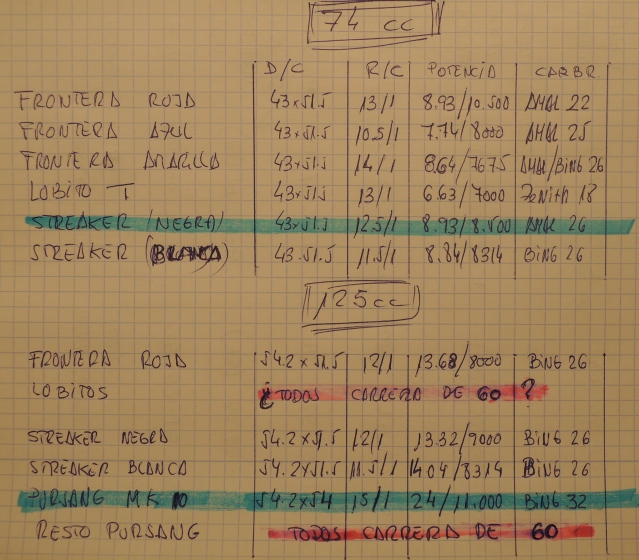 74 cc
D/C R/C POTENCIA CARBR
FRONTERA ROJA 43x51.5 13/1 8.93/10.500 AMAL 22
FRONTERA AZUL 43x51.5 10.5/1 7.74/8000 AMAL 25
FRONTERA AMARILLA 43x51.5 14/1 8.64/7675 AMAL/BING 26
LOBITO T 43x51.5 13/1 6.63/7000 ZENITH 18
STREAKER (NEGRA) 43x51.5 12.5/1 8.93/8.500 AMAL 26
STREAKER (BLANCA) 43.51.5 11.5/1 8.84/8314 BING 26
125cc
FRONTERA ROJA 54.2x51.5 12/1 13.68/8000 BING 26
LOBITOS ¿TODOS CARRERA DE 60 ?
STREAKER NEGRA 54.2x51.5 12/1 13.32/9000 BING 26
STREAKER BLANCA 54.2x51.5 11.5/1 14.04/8314 BING 26
PURSANG MK 10 54.2x54 15/1 24/11.000 BING 32
RESTO PURSANG TODOS CARRERA DE 60